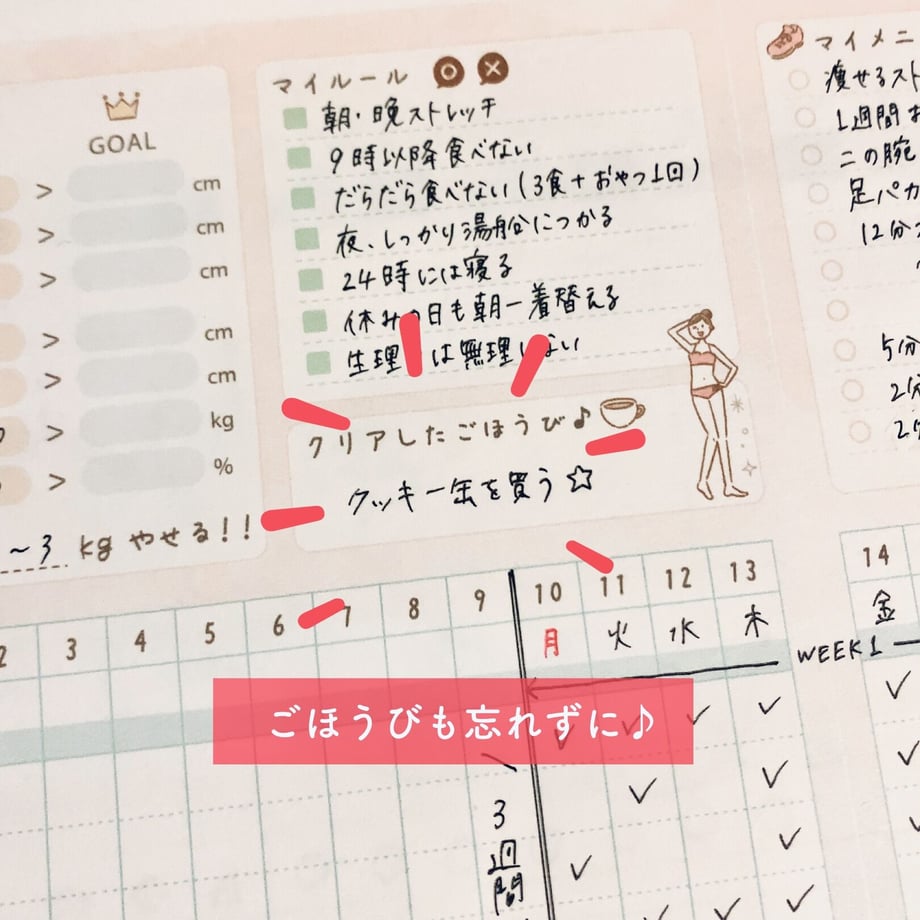 GOAL
> cm
> cm
> cm
> cm
> cm
> kg
> %
~3 kg やせる!!
マイルール
朝・晩ストレッチ
9時以降食べない
だらだら食べない(3食+おやつ1回)
夜、しっかり湯船につかる
24時には寝る
休みの日も朝一着替える
生理 は無理 ない
クリアしたごほうび♪
クッキー缶を買う☆
マイメニ
痩せるスト
1週間
この腕
足パカ
12分
5分
2分
2
2 3 4 5 6 7 8 9 10 11 12 13 14
月 火 水 木 金
WEEK1
ごほうびも忘れずに♪
3週間